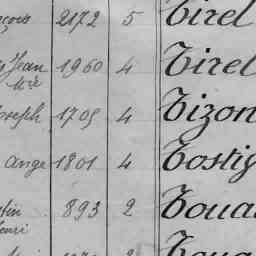 2172 5 Tirel
Jean 1960 4 Tirel
Joseph 1705 4 Tizon
Ange 1801 4 Tostig
893 2 Toua
Henri